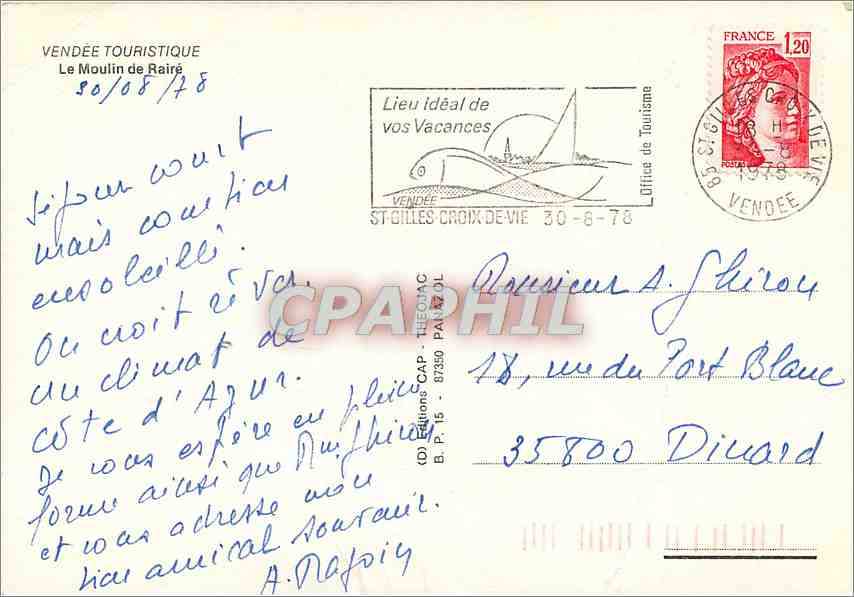 VENDÉE TOURISTIQUE
Le Moulin de Rairé
30/08/78
Séjour court
mais combien
ensoleillé.
On croit rêver
un climat de
côte d'Azur.
Je vous espère en pleine
forme ainsi que Mme Ghirou
et vous adresse mon
bien amical souvenir.
A.
Lieu idéal de
vos Vacances
VENDÉE
Office de Tourisme
ST-GILLES-CROIX-DE-VIE 30-8-78
FRANCE 1,20
POSTES
85 ST GILLES CROIX DE VIE
18 H
30-8
1978
VENDEE
CPAPHIL
(D) Editions CAP - THEOJAC
B. P. 15 - 87350 PANAZOL
Monsieur A. Ghirou
18, rue du Port Blanc
35800 Dinard